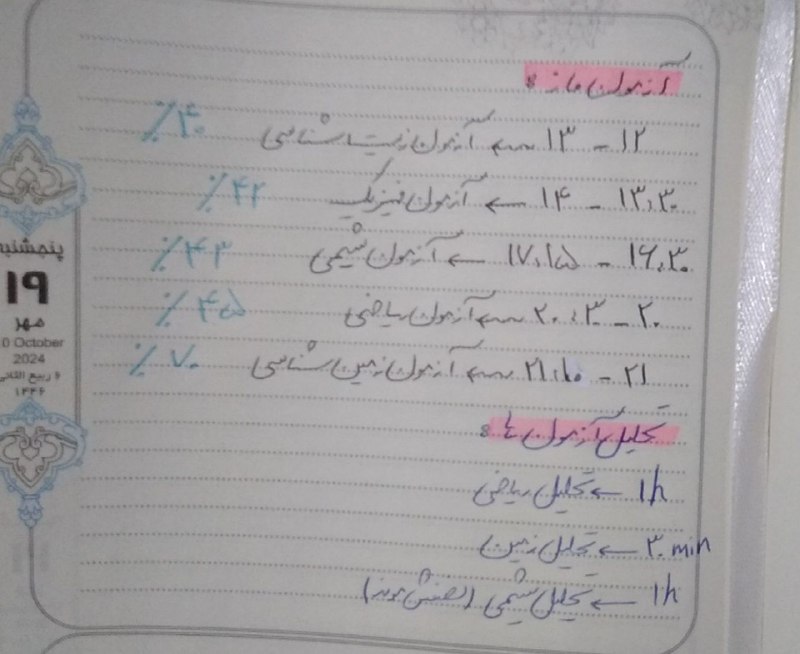 آزمون ماز :
۱۲ - ۱۳ ← آزمون زیست شناسی ٪۴۰
۱۳:۳۰ - ۱۴ ← آزمون فیزیک ٪۴۲
۱۶:۳۰ - ۱۷:۱۵ ← آزمون شیمی ٪۴۳
۲۰ - ۲۰:۳۰ ← آزمون ریاضی ٪۴۵
۲۱ - ۲۱:۱۰ ← آزمون زمین شناسی ٪۷۰
تحلیل آزمون ها :
۱h ← تحلیل ریاضی
۳۰ min ← تحلیل زمین
۱h ← تحلیل شیمی (نصفش موند)
پنجشنبه
۱۹
مهر
0 October
2024
۶ ربیع الثانی
۱۴۴۶